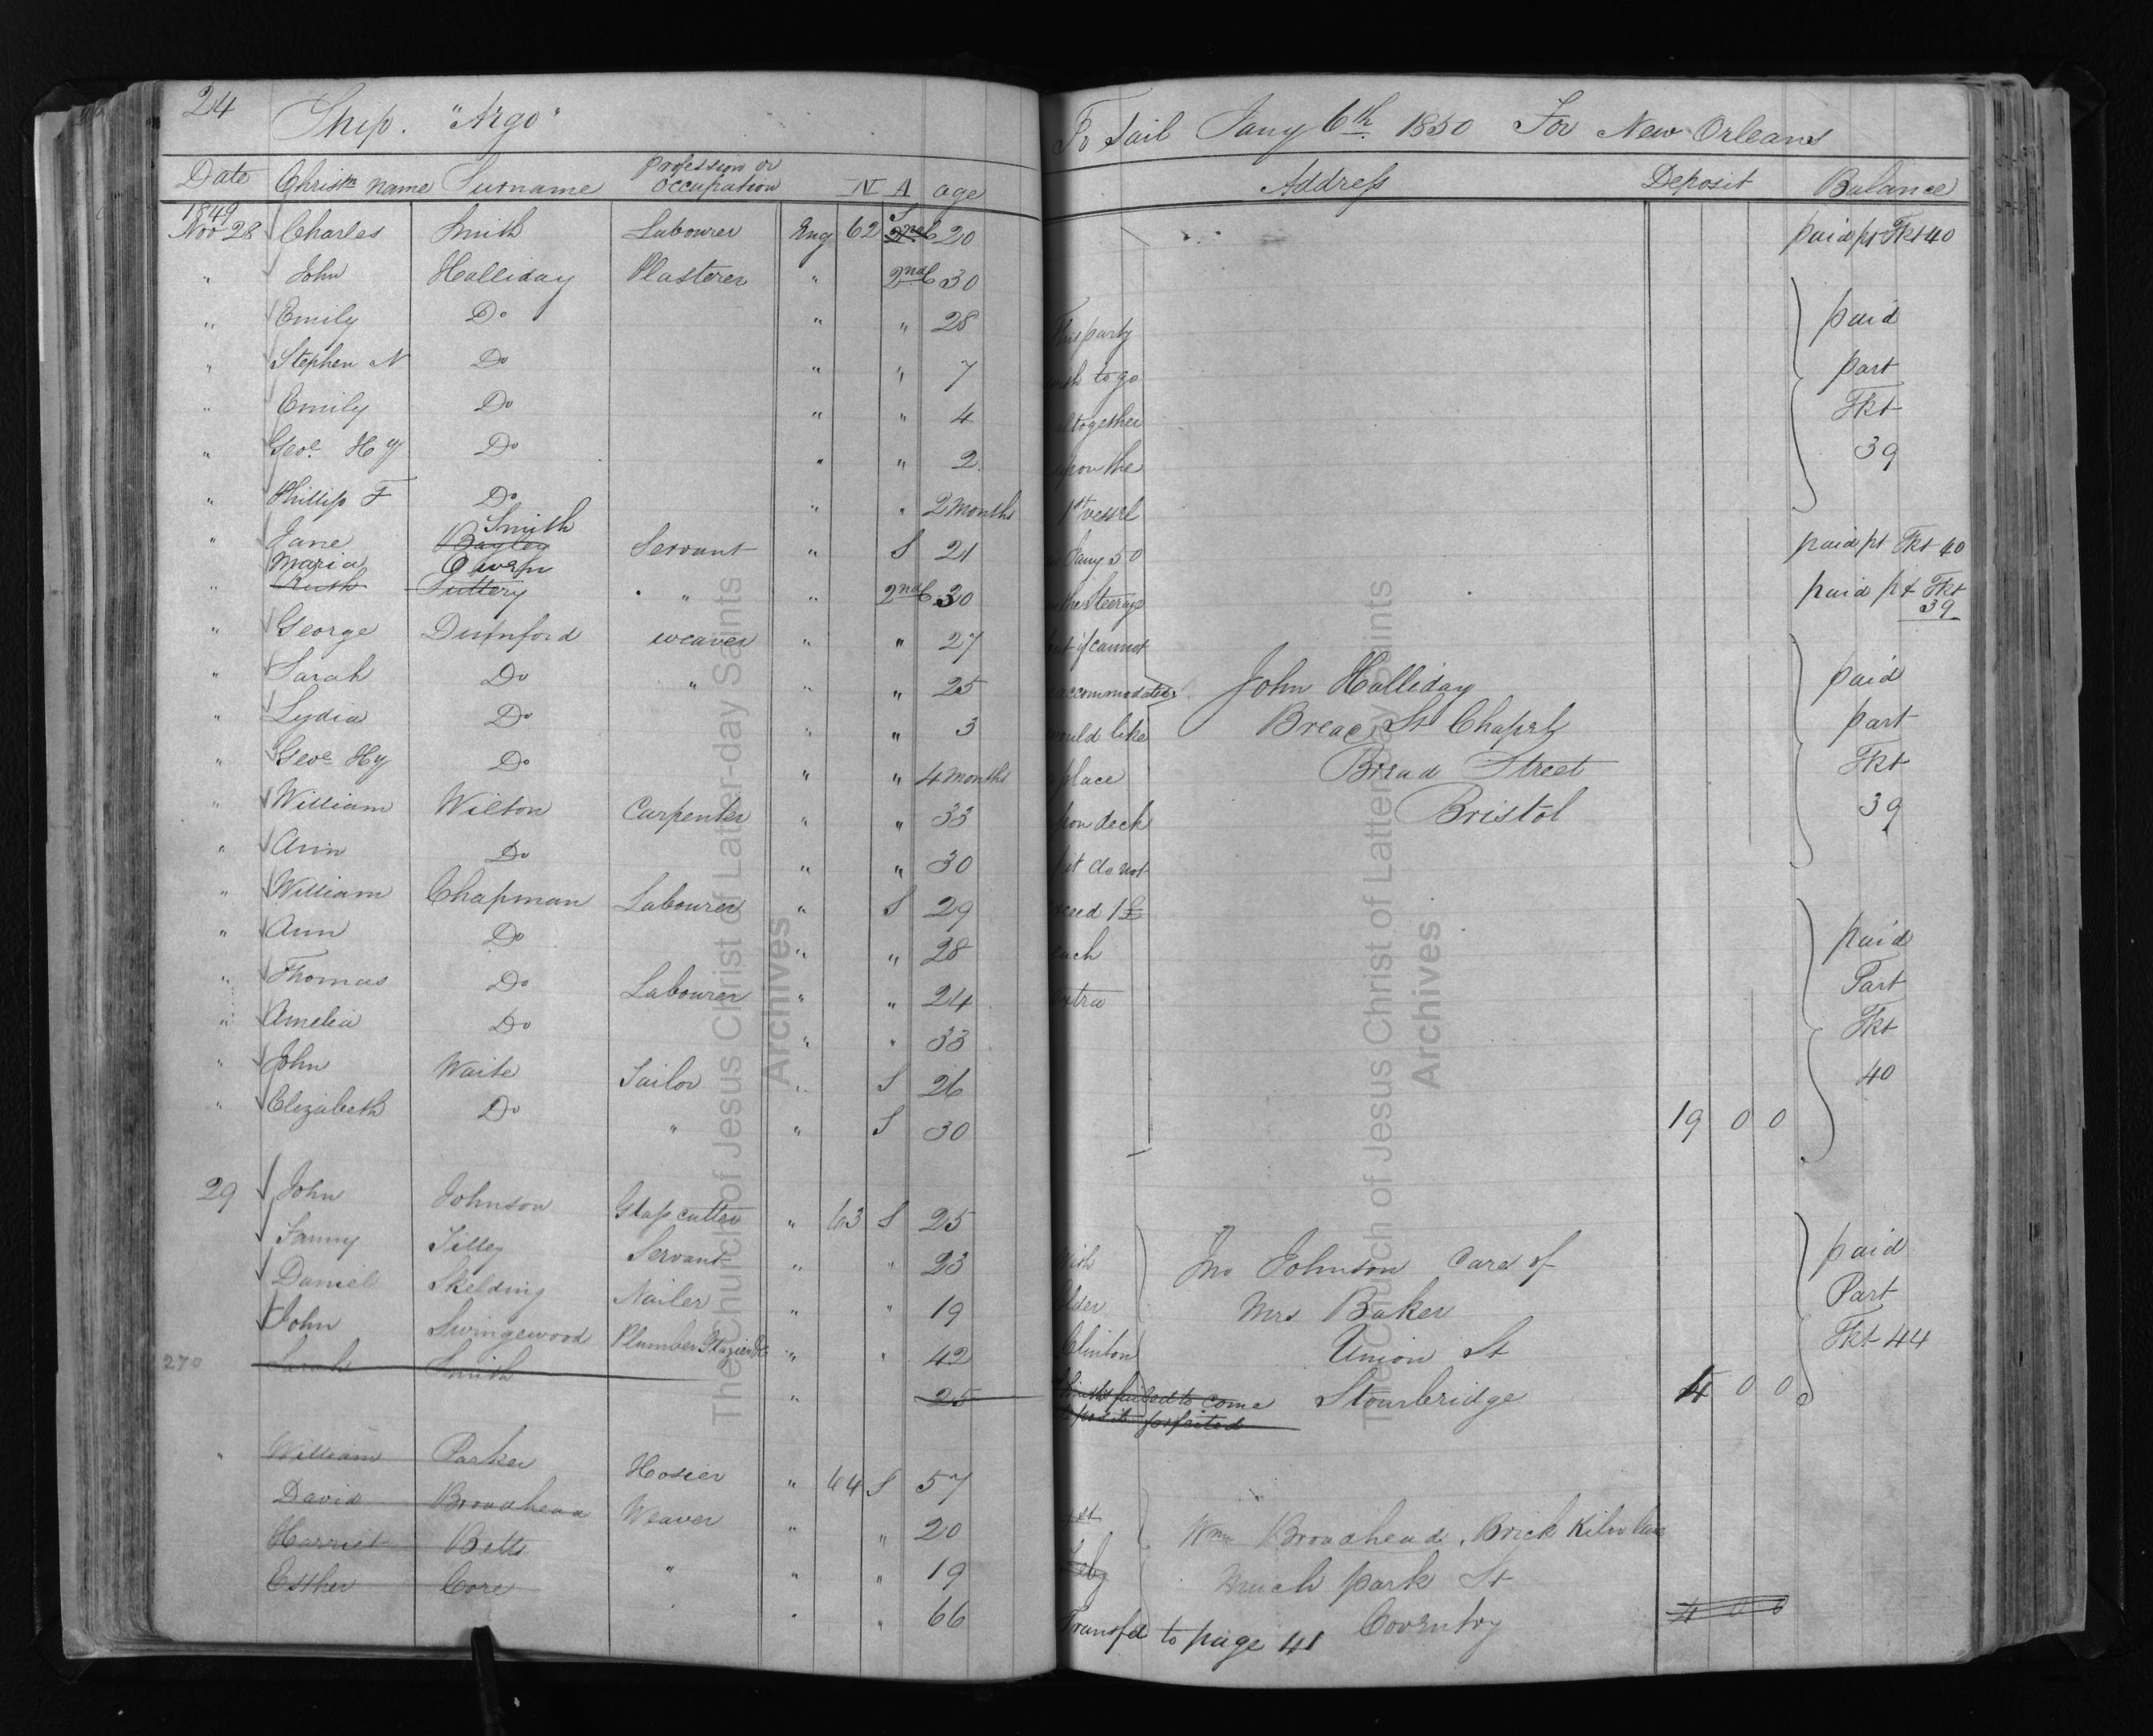 24 Ship. "Argo" To Sail Jany 6th 1850 For New Orleans
Date Christn name Surname Profession or Occupation N A age Address Deposit Balance
1849
Nov 28 Charles Smith Labourer Eng 62 S 2nd C 20 paid pt Tkt 40
" John Halliday Plasterer " 2nd C 30
" Emily Do " " 28 This party paid
" Stephen N Do " " 7 wish to go part
" Emily Do " " 4 altogether Tkt
" Geoe. Hy Do " " 2 upon the 39
" Phillip F Do " " 2 months 1st vessel
" Jane Bagley Smith Servant " S 21 Jany 50 paid pt Tkt 40
Maria Owen
" Ruth Tuttery " " 2nd C 30 the steerage paid pt Tkt 39
" George Durnford weaver " " 27 but if cannot
" Sarah Do " " " 25 accommodated John Halliday paid
" Lydia Do " " 3 would like Break St Chapel part
" Geoe Hy Do " " 4 months place Bread Street Tkt
" William Wilton Carpenter " " 33 upon deck Bristol 39
" Ann Do " " 30 it do not
" William Chapman Labourer " S 29 exceed 1£
" Ann Do " " 28 each paid
" Thomas Do Labourer " " 24 extra Part
" Amelia Do " " 33 Tkt
" John Waite Sailor " S 26 40
" Elizabeth Do " " S 30 19 0 0
29 John Johnson Glass cutter " 63 S 25
Fanny Tilley Servant " " 23 Wish Jno Johnson Care of paid
Daniel Skelding Nailer " " 19 Elder Mrs Baker Part
John Swingewood Plumber Glazier &c " " 42 Clinton Union St Tkt 44
270 Sarah Smith " 25 failed to come Stourbridge 4 0 0
deposit forfeited
" William Parker Hosier " 64 S 57
David Broadhead Weaver " " 20 Wm Broadhead, Brick Kiln Lane
Harriet Betts " " " 19 Much park St
Esther Core " " " 66 Transfd to page 41 Coventry 4 0 0
The Church of Jesus Christ of Latter-day Saints
Archives
The Church of Jesus Christ of Latter-day Saints
Archives